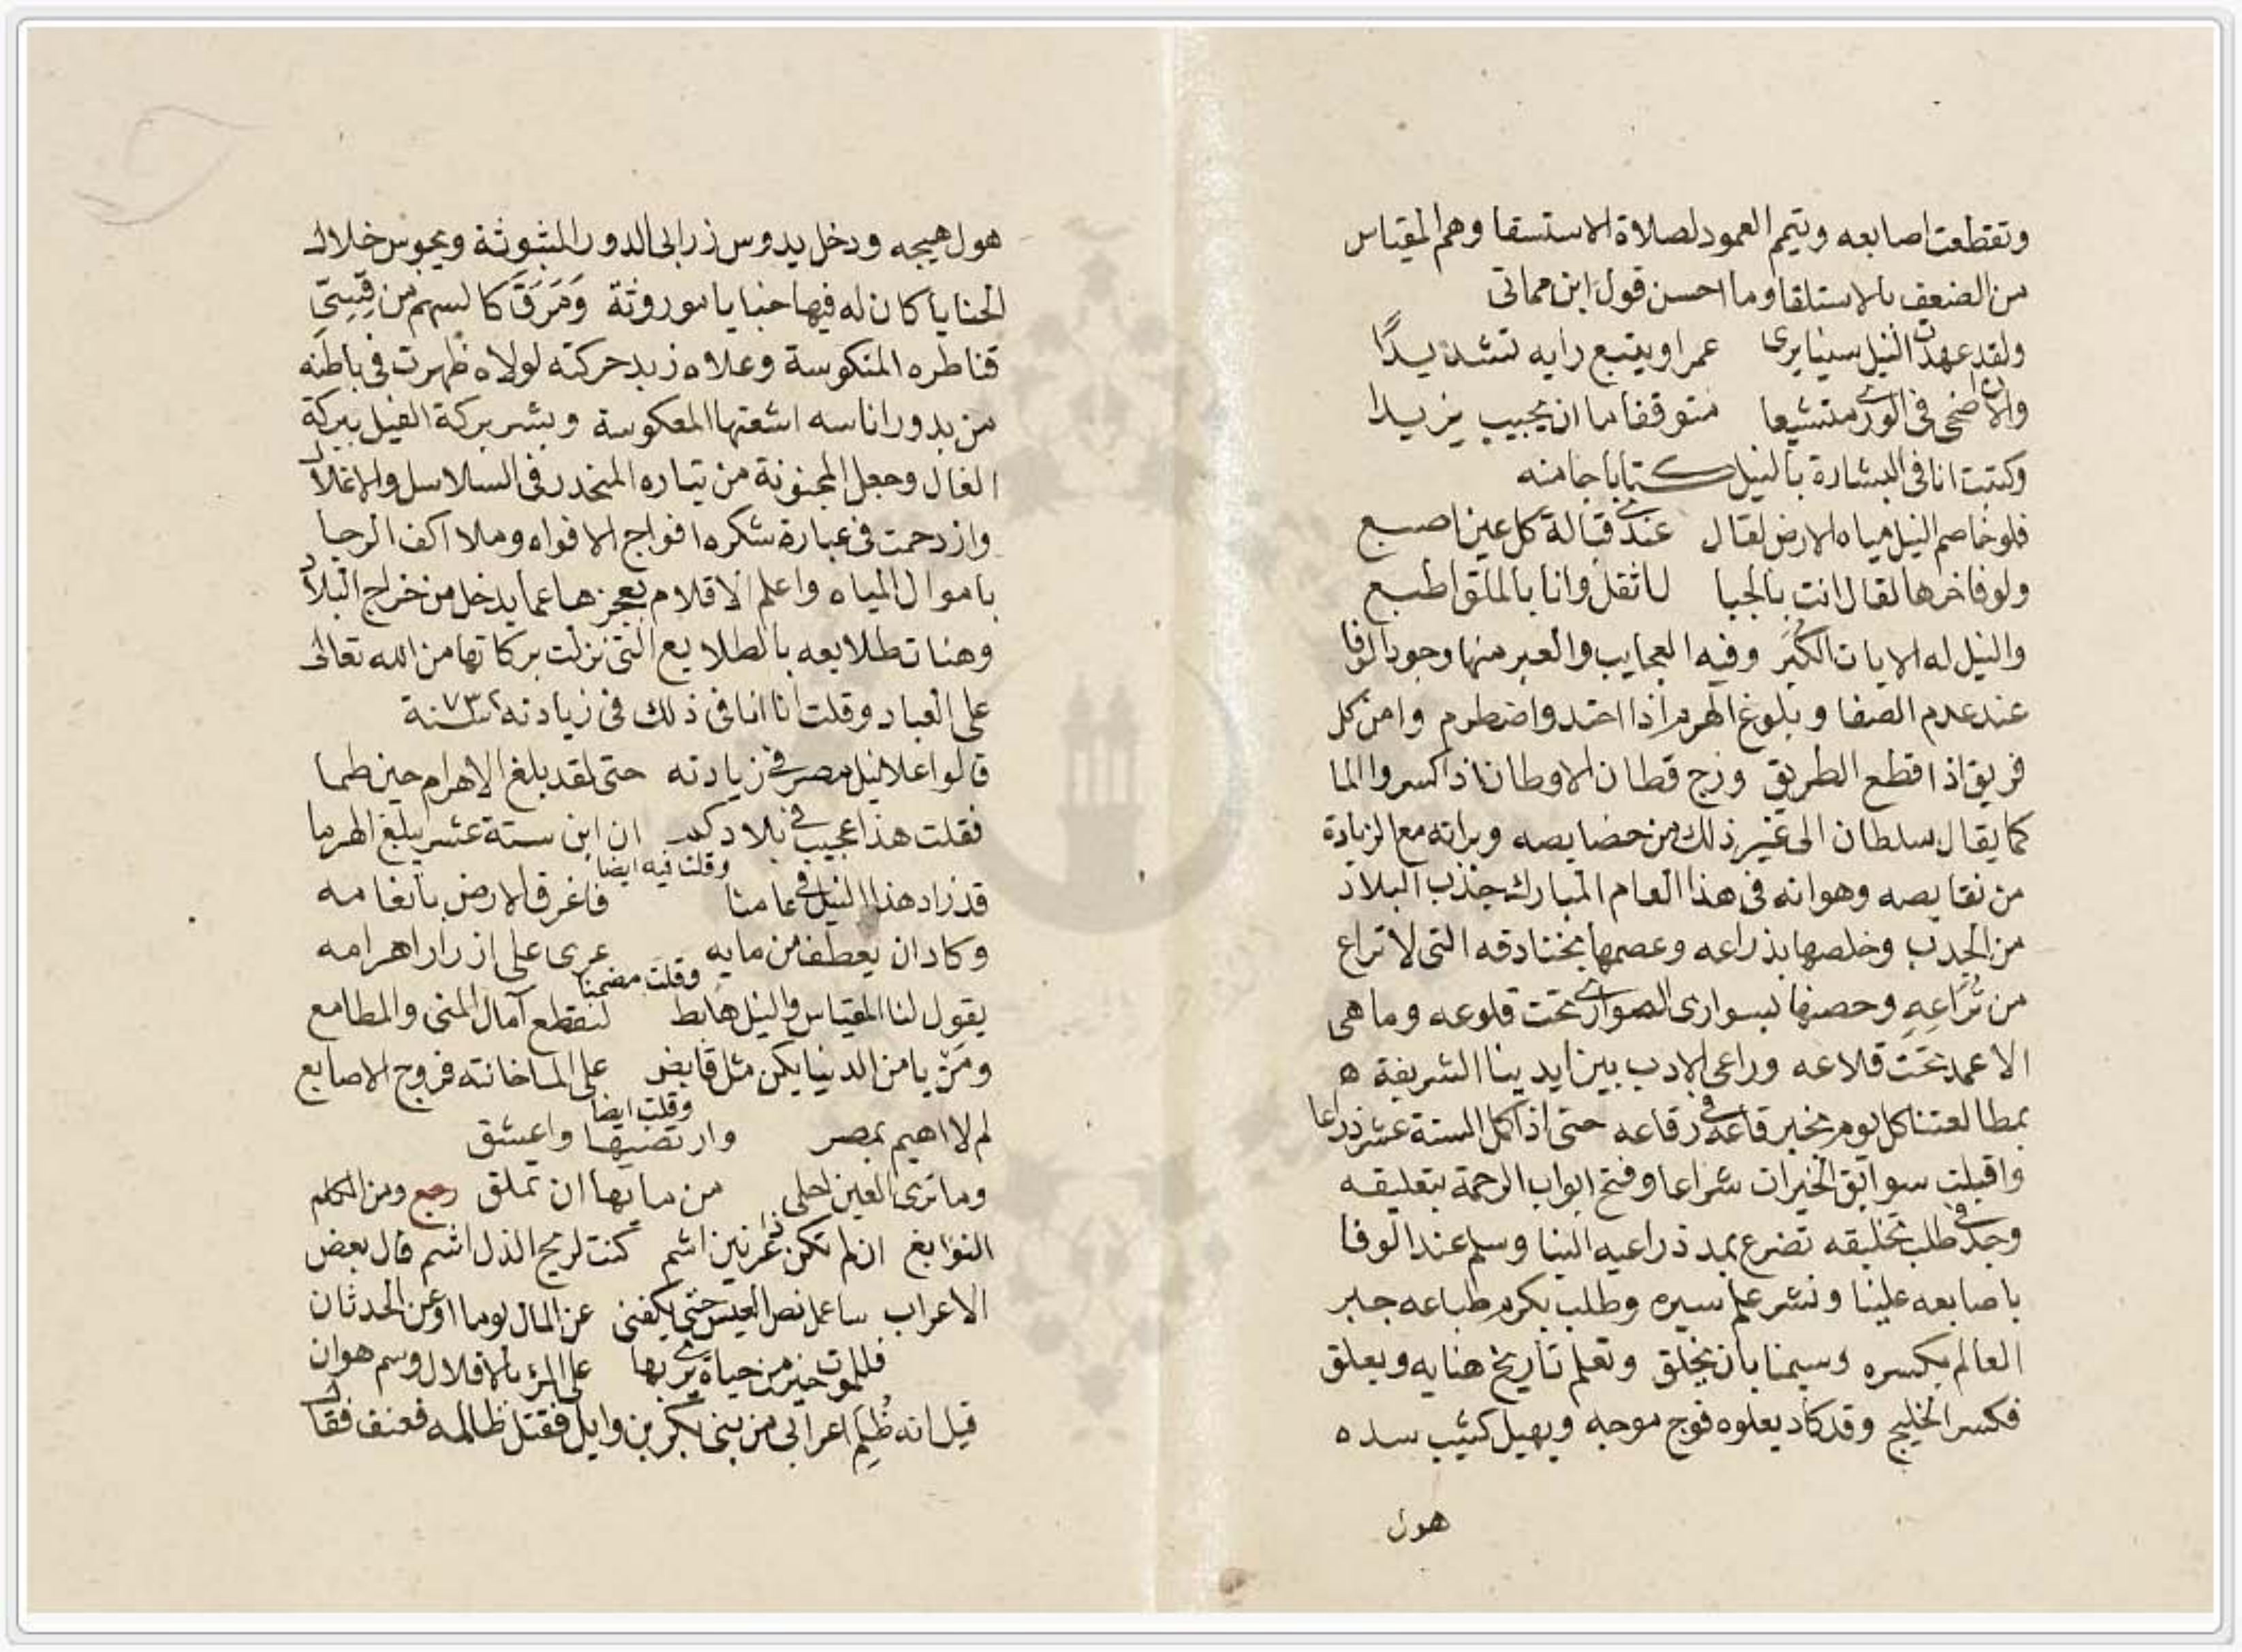 وتقطعت اصابعه وتيمم العمود لصلاة الاستسقا وهم المقياس
من الضعف بالاستلقا وما احسن قول ابن مماتى
ولقد عهدت النيل سنيا يرى عمرا ويتبع رايه تشديدًا
والان اضحى فى الورى متشيعا متوقفا ما ان يجيب يزيدا
وكتبت انا فى البشارة بالنيل كتابا جا منه
فلو خاصم النيل مياه الارض لقال عندى قبالة كل عين اصبع
ولو فاخرها لقال انت بالجبا ل اثقل وانا بالملق اطبع
والنيل له الايات الكُبَر وفيه العجايب والعبر منها وجود الوفا
عند عدم الصفا وبلوغ الهرم اذا احتد واضطرم وامن كل
فريق اذا قطع الطريق وفرج قطان الاوطان اذا كسر والما
كما يقال سلطان الى غير ذلك من خصايصه وبراته مع الزيادة
من نقايصه وهو انه فى هذا العام المبارك جذب البلاد
من الجدب وخلصها بذراعه وعصمها بخنادقه التى لا تراع
من تُرَاعِهِ وحصنها بسوارى الصوارى تحت قلوعه وما هى
الا عمد تحت قلاعه وراعى الادب بين ايدينا الشريفة ه
بمطالعتنا كل يوم بخبر قاعه فى رقاعه حتى اذا اكمل الستة عشر ذراعا
واقبلت سوابق الخيرات شراعا وفتح ابواب الرحمة بتعليقه
وجد فى طلب تخليقه تضرع بمد ذراعيه الينا وسلم عند الوفا
باصابعه علينا ونشر علم ستره وطلب بكرم طباعه جبر
العالم بكسره ورسمنا بان يخلق وتعلم تاريخ هنايه ويعلق
فكسر الخليج وقد كاد يعلوه فوج موجه ويهيل كثيب سده
هول
هول هيجه ودخل يدوس زرابى الدور المبثوثة ويجوس خلال
الحنايا كان له فيها خبايا موروثة وَمَرَقَ كالسهم من قِسِىِّ
قناطره المنكوسة وعلاه زبد حركته لولاه ظهرت فى باطنه
من بدور اناسه اشعتها المعكوسة وبشر بركة الفيل ببركة
الفال وجعل المجنونة من تياره المنحدر فى السلاسل والاغلال
وازدحمت فى عبارة شكره افواج الافواه وملا اكف الرجا
باموال المياه واعلم الاقلام بعجزها عما يدخل من خراج البلاد
وهنات طلايعه بالطلايع التى نزلت بركاتها من الله تعالى
على العباد وقلت انا فى ذلك فى زيادته سنة
قالوا علا نيل مصر فى زيادته حتى لقد بلغ الاهرام حين طما
فقلت هذا عجيب فى بلادكم ان ابن ستة عشر يبلغ الهرما
وقلت فيه ايضا
قد زاد هذا النيل فى عامنا فاغرق الارض بانعامه
وكاد ان يعطف من مايه عرى على ازرار اهرامه
وقلت مضمنا
يقول لنا المقياس والنيل هابط لنقطع آمال المنى والمطامع
ومَنْ يا من الدنيا يكن مثل قابض على الما خانته فروج الاصابع
وقلت ايضا
لم لا اهيم بمصر وارتضيها واعشق
وما ترى العين احلى من مايها ان تملق رجع ومن الكلم
النوابغ ان لم تكن ذا عرنين اشم كنت لريح الذل اشم قال بعض
الاعراب ساعمل نص العيس حتى يكفنى عن المال يوما او عن الحدثان
فللموت خير من حياة يرى بها على المرء بالاقلال وسم هوان
قيل انه ظُلِمَ اعرابى من بنى بكر بن وايل فقتل ظالمه فعنف فقال